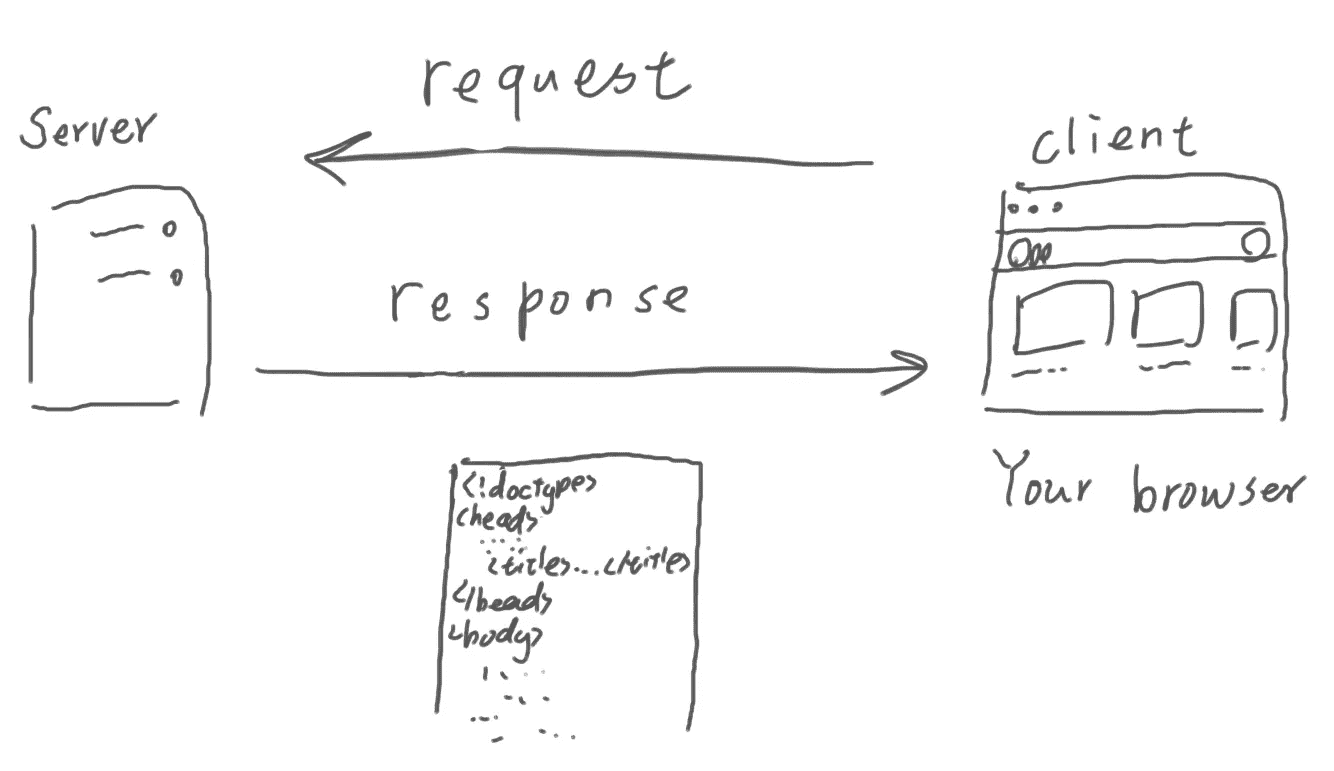 request
Server
client
response
Your browser
<!doctype>
<head>
<title>...</title>
</head>
<body>